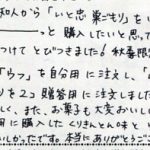 知人から「いと恋 栗ごもり」を
っと 購入したいと思って
つけて とびつきました! 秋季限
「らっ」を自分用に注文し、「
」を2コ贈答用に注文しました
しく、また、お菓子も大変おいし
用に購入した くりきんとん味と
いしかったです。本当にありがとうご